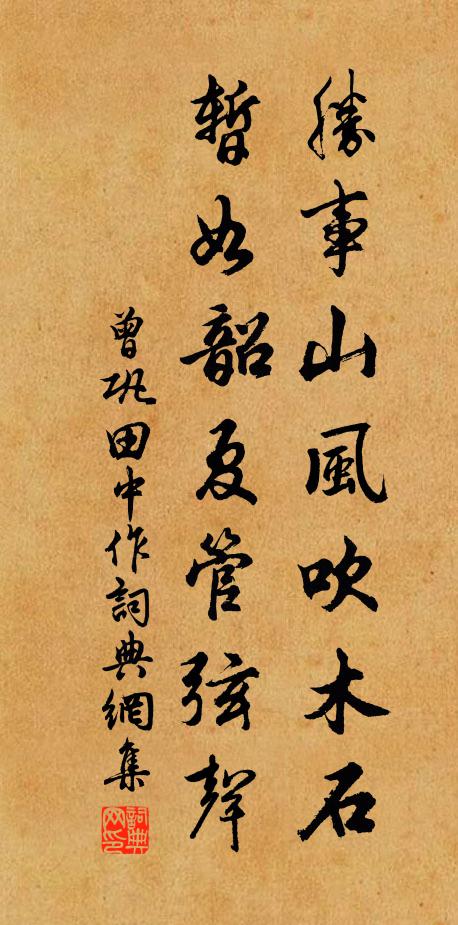 勝事山風吹木石
暫如韶夏管弦聲
曾巩田中作詞典網集
詞典网印